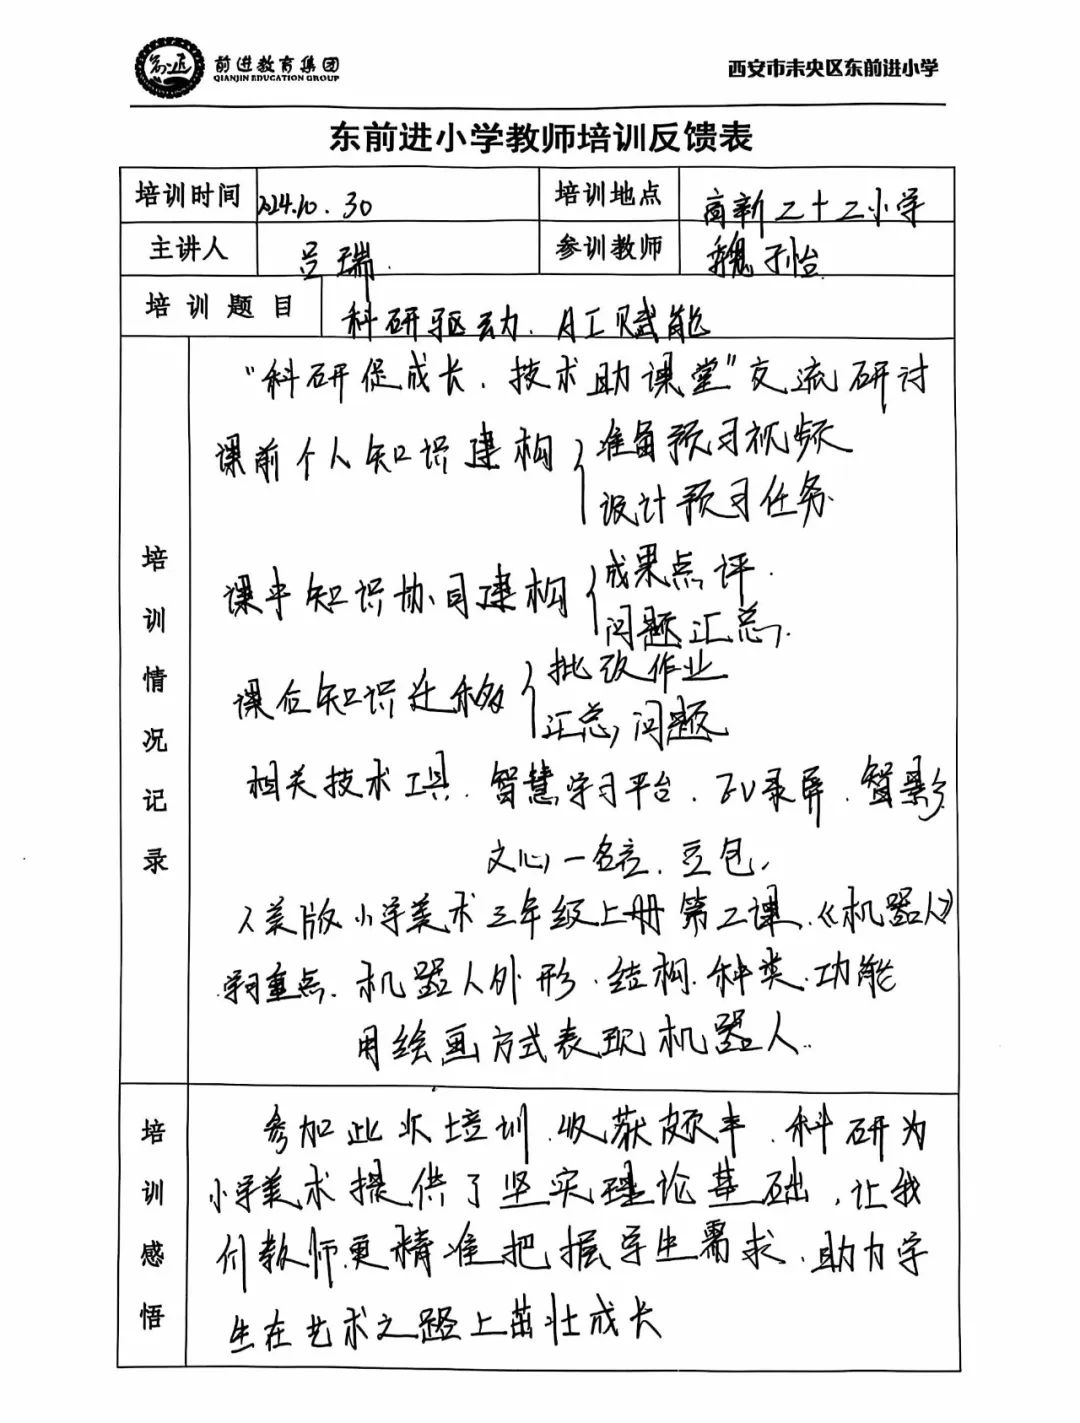 前进教育集团
QIANJIN EDUCATION GROUP
西安市未央区东前进小学
东前进小学教师培训反馈表
培训时间 2024.10.30 培训地点 高新二十二小学
主讲人 吕瑞 参训教师 魏孙怡
培训题目 科研驱动、AI赋能
培训情况记录
“科研促成长、技术助课堂”交流研讨
课前个人知识建构{准备预习视频
设计预习任务
课中知识协同建构{成果点评
问题汇总
课后知识迁移{批改作业
汇总问题
相关技术工具、智慧学习平台、EV录屏、智影
文心一言、豆包、
人美版小学美术三年级上册第二课、《机器人》
学习重点、机器人外形、结构、种类、功能
用绘画方式表现机器人
培训感悟
参加此次培训、收获颇丰、科研为
小学美术提供了坚实理论基础,让我
们教师更精准把握学生需求、助力学
生在艺术之路上茁壮成长